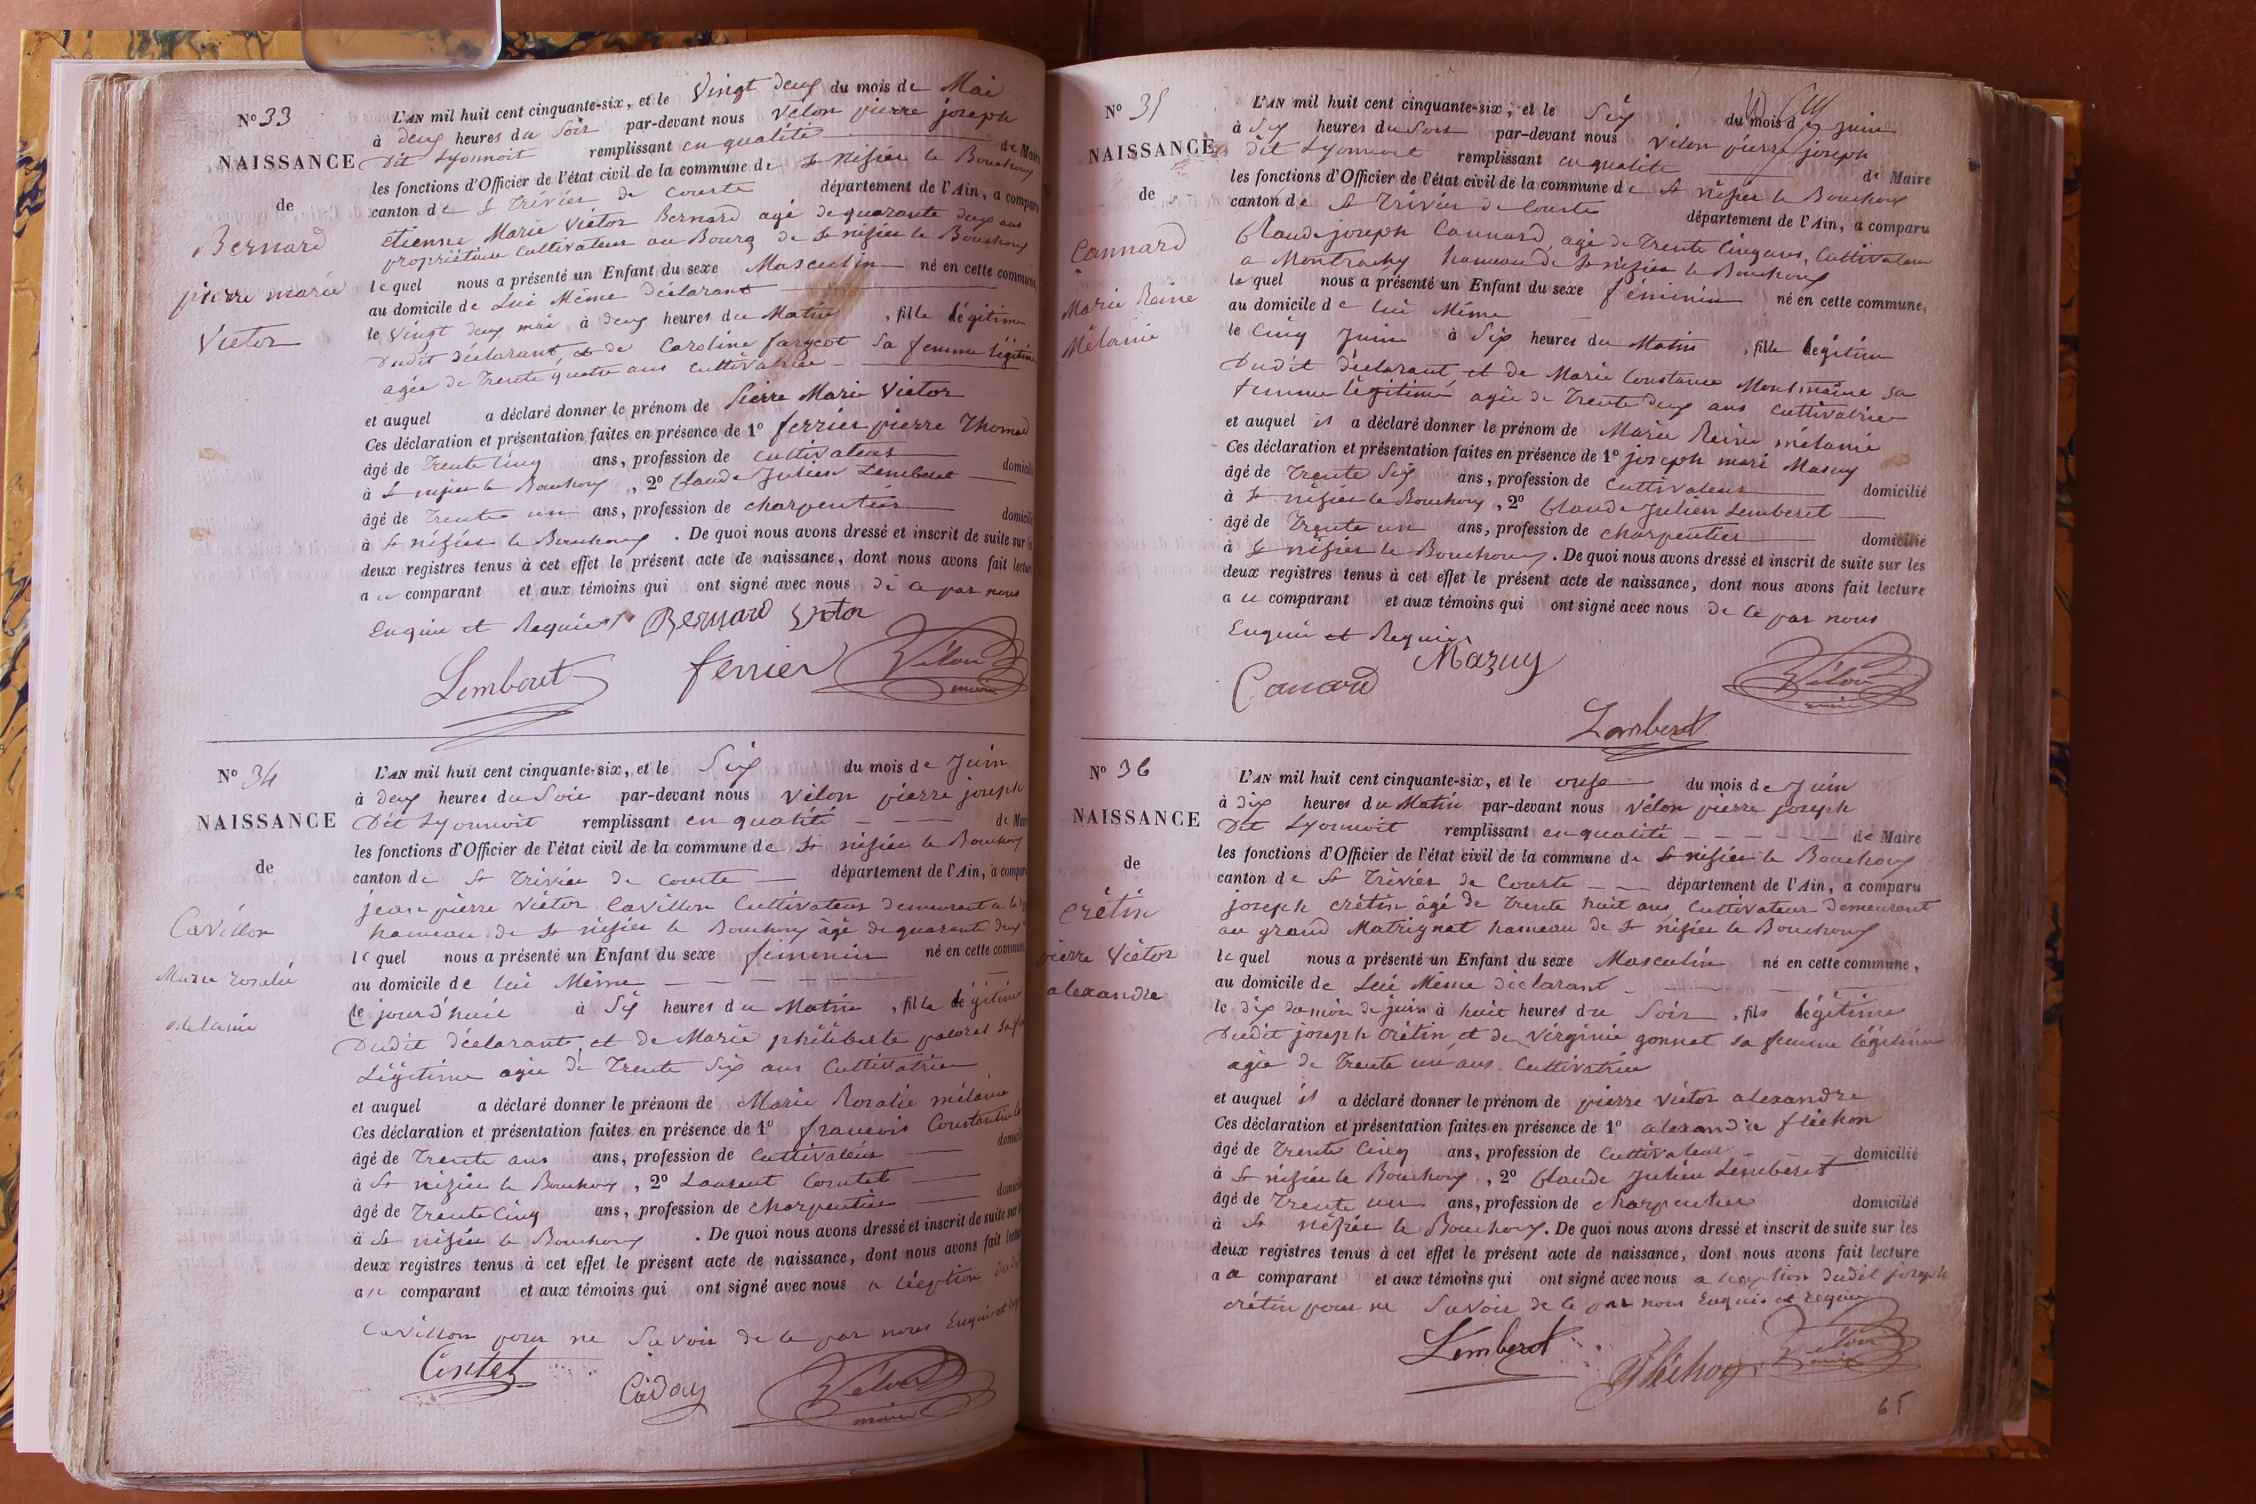 N° 33
NAISSANCE
de
Bernard
pierre marie
Victor
L'AN mil huit cent cinquante-six, et le Vingt deux du mois de Mai
à deux heures du Soir par-devant nous Vélon pierre joseph
Dit Lyonnoit remplissant en qualité de Maire
les fonctions d'Officier de l'état civil de la commune de St nizier le Bouchoux
canton de St Trivier de Courte département de l'Ain, a comparu
étienne Marie Victor Bernard agé de quarante deux ans
propriétaire Cultivateur au Bourg de St nizier le Bouchoux
lequel nous a présenté un Enfant du sexe Masculin né en cette commune,
au domicile de Lui Même déclarant
le Vingt deux mai à deux heures du Matin, fille légitime
Dudit déclarant, et de Caroline farycot Sa femme légitime
agée de Trente quatre ans cultivatrice
et auquel a déclaré donner le prénom de Pierre Marie Victor
Ces déclaration et présentation faites en présence de 1° ferrier pierre Thomas
âgé de Trente Cinq ans, profession de Cultivateur domicilié
à St nizier le Bouchoux, 2° Claude Julien Lemberet
âgé de Trente un ans, profession de charpentier domicilié
à St nizier le Bouchoux. De quoi nous avons dressé et inscrit de suite sur les
deux registres tenus à cet effet le présent acte de naissance, dont nous avons fait lecture
au comparant et aux témoins qui ont signé avec nous de ce par nous
Enquis et Requis Bernard Victor
Lemberet ferrier Vélon
maire
N° 34
NAISSANCE
de
Cavillon
Marie rosalie
mélanie
L'AN mil huit cent cinquante-six, et le Six du mois de Juin
à deux heures du Soir par-devant nous Vélon pierre joseph
Dit Lyonnoit remplissant en qualité de Maire
les fonctions d'Officier de l'état civil de la commune de St nizier le Bouchoux
canton de St Trivier de Courte département de l'Ain, a comparu
jean pierre Victor Cavillon Cultivateur demeurant a
hameau de St nizier le Bouchoux âgé de quarante deux
lequel nous a présenté un Enfant du sexe féminin né en cette commune
au domicile de lui Même
le jourd'huié à Six heures du Matin, fille légitime
Dudit déclarante, et de Marie philiberte
Légitime agée de Trente Six ans Cultivatrice
et auquel a déclaré donner le prénom de Marie Rosalie mélanie
Ces déclaration et présentation faites en présence de 1° francois Constantin
âgé de Trente ans ans, profession de Cultivateur domicilié
à St nizier le Bouchoux, 2° Laurent Comtet
âgé de Trente Cinq ans, profession de charpentier domicilié
à St nizier le Bouchoux. De quoi nous avons dressé et inscrit de suite sur les
deux registres tenus à cet effet le présent acte de naissance, dont nous avons fait lecture
au comparant et aux témoins qui ont signé avec nous a léception dudit
Cavillon pour ne Savoir de ce par nous Enquis et
Comtet Caday Vélon
maire
N° 35
NAISSANCE
de
Cannard
Marie Reine
Mélanie
L'AN mil huit cent cinquante-six, et le Six du mois de Juin
à Six heures du Soir par-devant nous Vélon pierre joseph
dit Lyonnoit remplissant en qualité de Maire
les fonctions d'Officier de l'état civil de la commune de St nizier le Bouchoux
canton de St Trivier de Courte département de l'Ain, a comparu
Claude joseph Cannard, agé de Trente Cinq ans, Cultivateur
a Montrachy hameau de St nizier le Bouchoux
lequel nous a présenté un Enfant du sexe féminin né en cette commune,
au domicile de lui Même
le Cinq Juin à Six heures du Matin, fille légitime
Dudit déclarant et de Marie Constance Montmaine sa
femme légitime agée de Trente deux ans cultivatrice
et auquel il a déclaré donner le prénom de Marie Reine mélanie
Ces déclaration et présentation faites en présence de 1° joseph marie Mazuy
âgé de Trente Six ans, profession de Cultivateur domicilié
à St nizier le Bouchoux, 2° Claude Julien Lemberet
âgé de Trente un ans, profession de charpentier domicilié
à St nizier le Bouchoux. De quoi nous avons dressé et inscrit de suite sur les
deux registres tenus à cet effet le présent acte de naissance, dont nous avons fait lecture
au comparant et aux témoins qui ont signé avec nous de ce par nous
Enquis et Requis
Mazuy
Canard Vélon
maire
Lemberet
N° 36
NAISSANCE
de
crétin
pierre Victor
alexandre
L'AN mil huit cent cinquante-six, et le onze du mois de Juin
à dix heures du Matin par-devant nous Vélon pierre joseph
Dit Lyonnoit remplissant en qualité de Maire
les fonctions d'Officier de l'état civil de la commune de St nizier le Bouchoux
canton de St Trivier de Courte département de l'Ain, a comparu
joseph crétin âgé de Trente huit ans Cultivateur demeurant
au grand Matrignat hameau de St nizier le Bouchoux
lequel nous a présenté un Enfant du sexe Masculin né en cette commune,
au domicile de Lui Même déclarant
le dix du mois de juin à huit heures du Soir, fils légitime
Dudit joseph crétin, et de Virginie gonnet sa femme légitime
agée de Trente un ans Cultivatrice
et auquel il a déclaré donner le prénom de pierre Victor alexandre
Ces déclaration et présentation faites en présence de 1° alexandre fléchon
âgé de Trente Cinq ans, profession de Cultivateur domicilié
à St nizier le Bouchoux, 2° Claude Julien Lemberet
âgé de Trente un ans, profession de charpentier domicilié
à St nizier le Bouchoux. De quoi nous avons dressé et inscrit de suite sur les
deux registres tenus à cet effet le présent acte de naissance, dont nous avons fait lecture
au comparant et aux témoins qui ont signé avec nous a léception dudit joseph
crétin pour ne Savoir de ce par nous Enquis et requis
Lemberet fléchon Vélon
maire
65